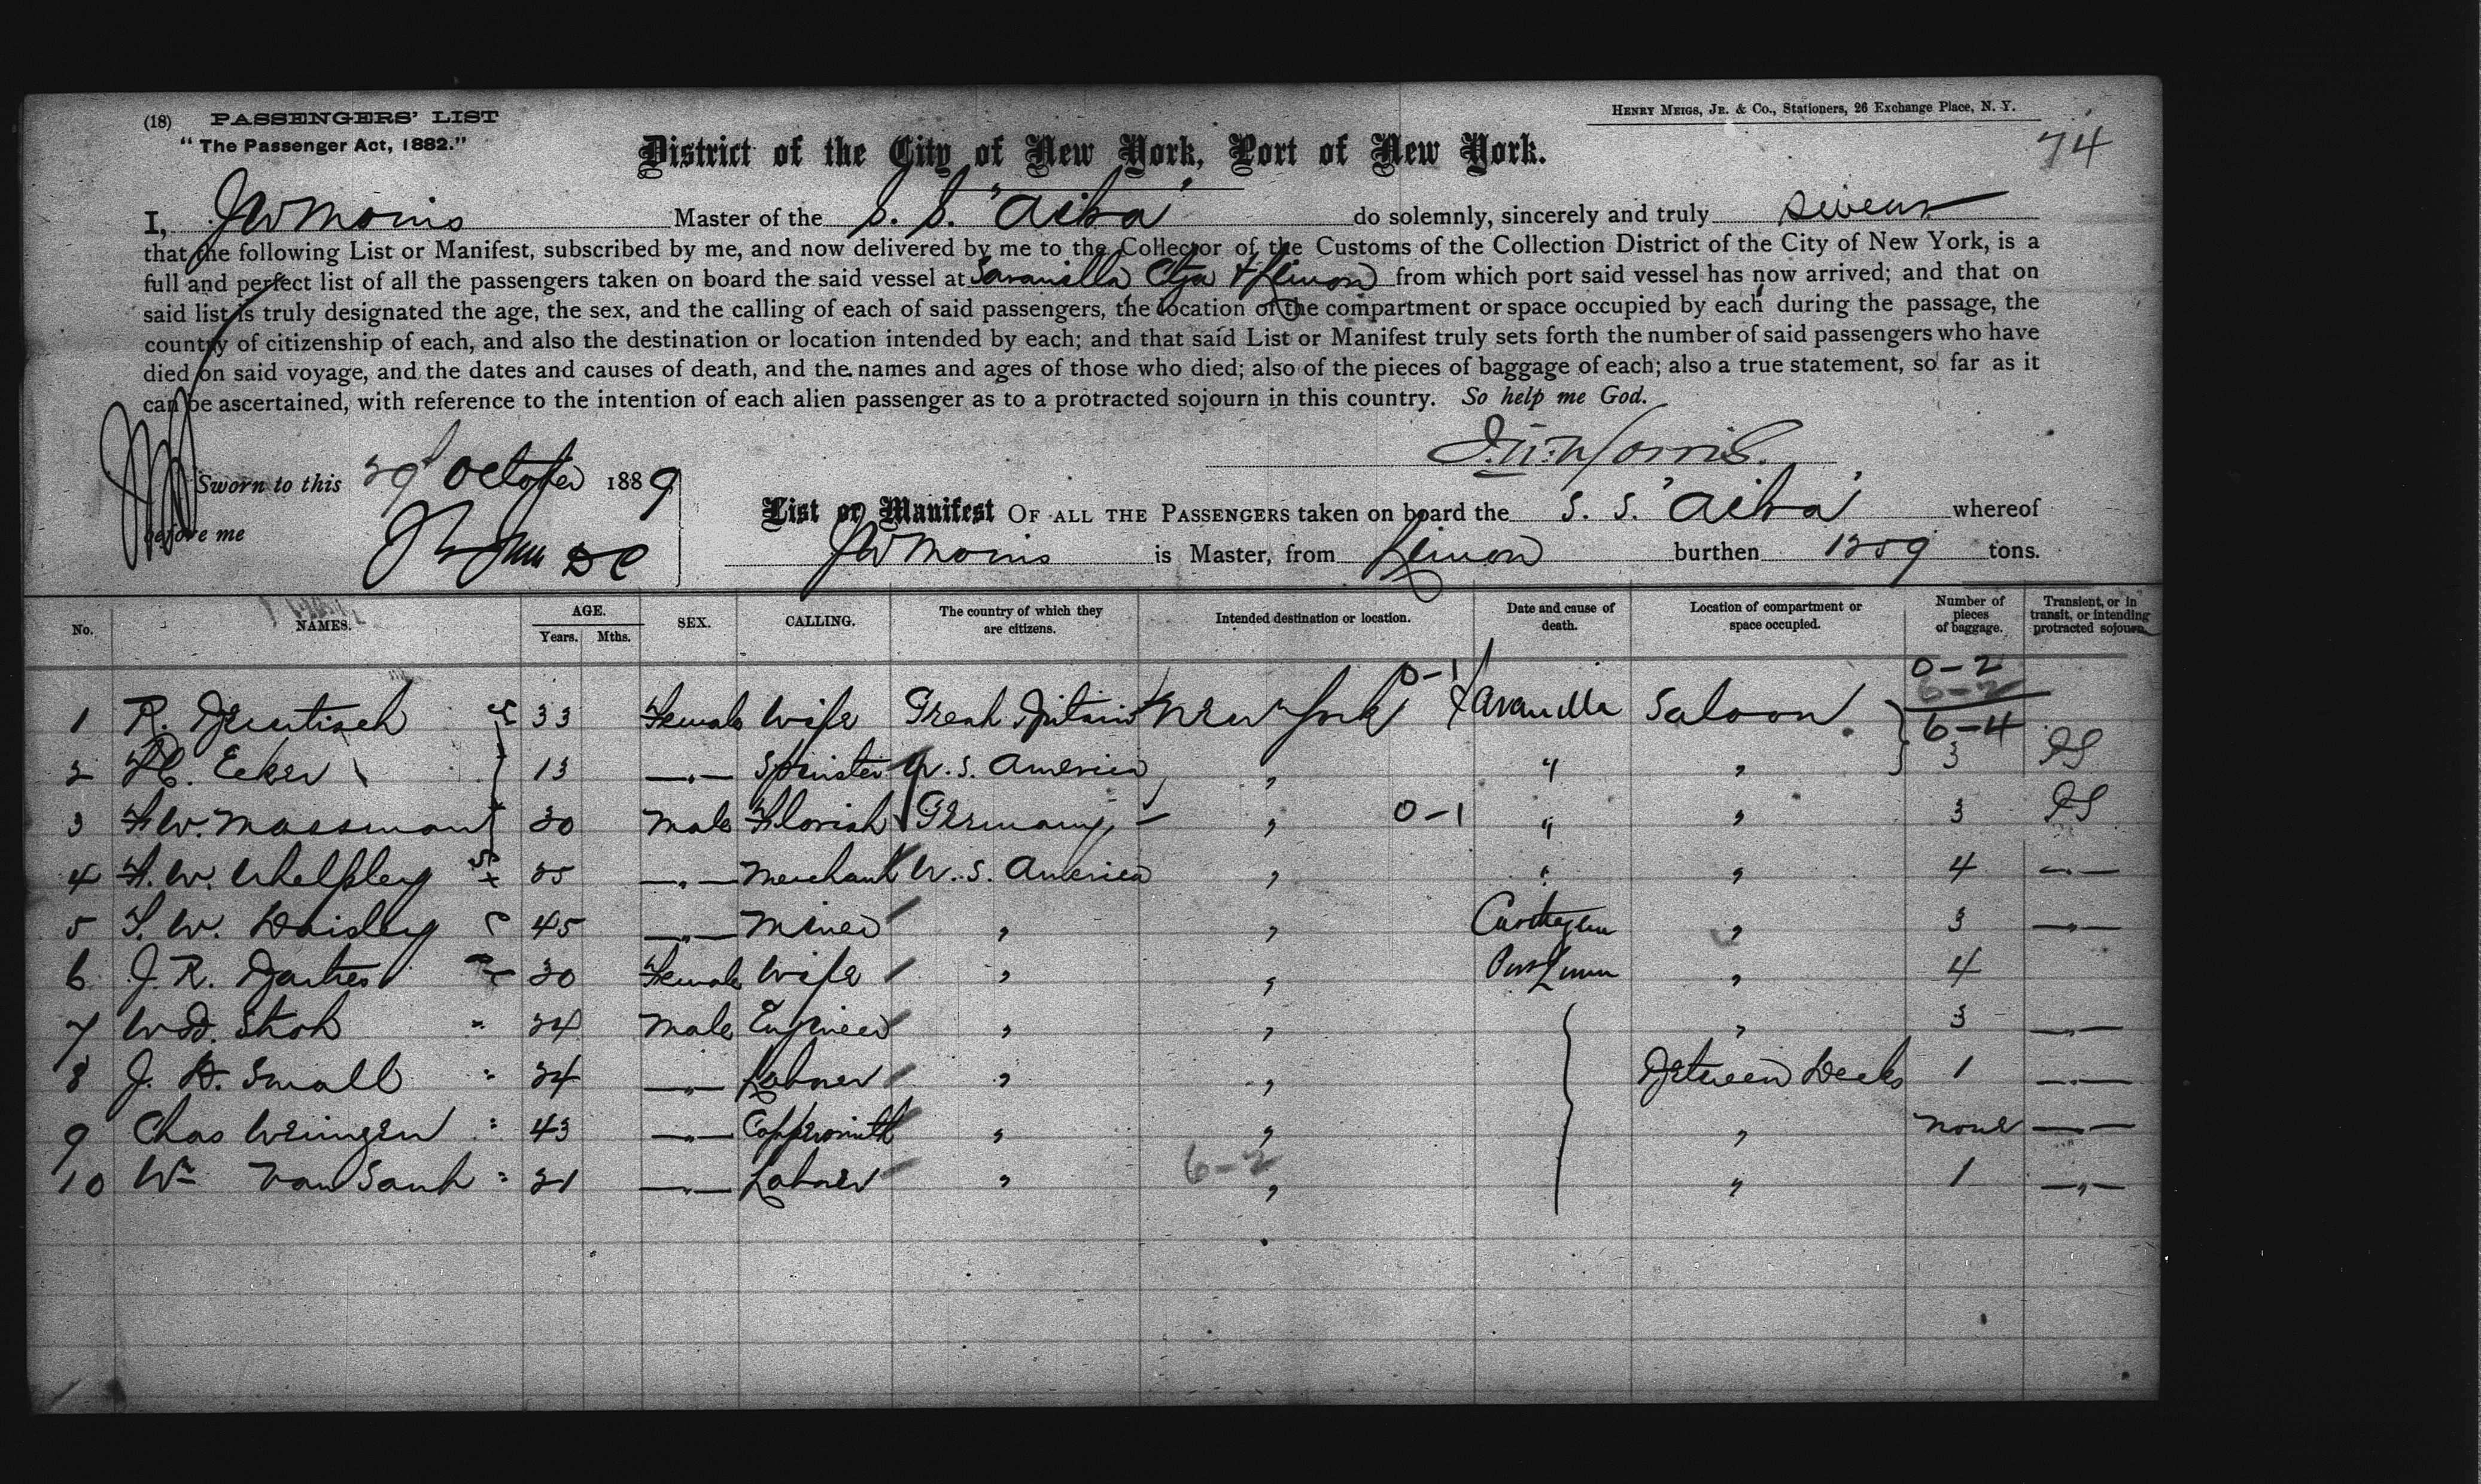 (18) PASSENGERS' LIST
HENRY MEIGS, JR. & CO., Stationers, 26 Exchange Place, N. Y.
"The Passenger Act, 1882."
District of the City of New York, Port of New York.
74
I, JW Morris Master of the S. S. "Ailsa" do solemnly, sincerely and truly swear
that the following List or Manifest, subscribed by me, and now delivered by me to the Collector of the Customs of the Collection District of the City of New York, is a
full and perfect list of all the passengers taken on board the said vessel at Savanilla, Ctga & Limon from which port said vessel has now arrived; and that on
said list is truly designated the age, the sex, and the calling of each of said passengers, the location of the compartment or space occupied by each during the passage, the
country of citizenship of each, and also the destination or location intended by each; and that said List or Manifest truly sets forth the number of said passengers who have
died on said voyage, and the dates and causes of death, and the names and ages of those who died; also of the pieces of baggage of each; also a true statement, so far as it
can be ascertained, with reference to the intention of each alien passenger as to a protracted sojourn in this country. So help me God.
J. W. Morris.
Sworn to this 29 October 1889
before me
List or Manifest OF ALL THE PASSENGERS taken on board the S. S. "Ailsa" whereof
JW Morris is Master, from Limon burthen tons.
No. NAMES. AGE. Years. Mths. SEX. CALLING. The country of which they are citizens. Intended destination or location. Date and cause of death. Location of compartment or space occupied. Number of pieces of baggage. Transient, or in transit, or intending protracted sojourn.
0-1 0-2
6-2
1 R. 33 Female Wife Great Britain New York Savanilla Saloon 6-4
2 Ecker 13 —"— Spinster U. S. America " " " 3
3 F. W. Massman 30 Male Florist Germany " 0-1 " " 3
4 F. W. Whelpley 35 —"— Merchant U. S. America " " " 4 —"—
5 W. 45 —"— Miner " " Carthagena " 3 —"—
6 J. R. 30 Female Wife " " Port Limon " 4
7 34 Male Engineer " " " 3 —"—
8 J. Small " 34 —"— Laborer " " Between Decks 1 —"—
9 Chas " 43 —"— Coppersmith " " " none —"—
10 Wm Van Sant " 21 —"— Laborer " 6-2 " " 1 —"—